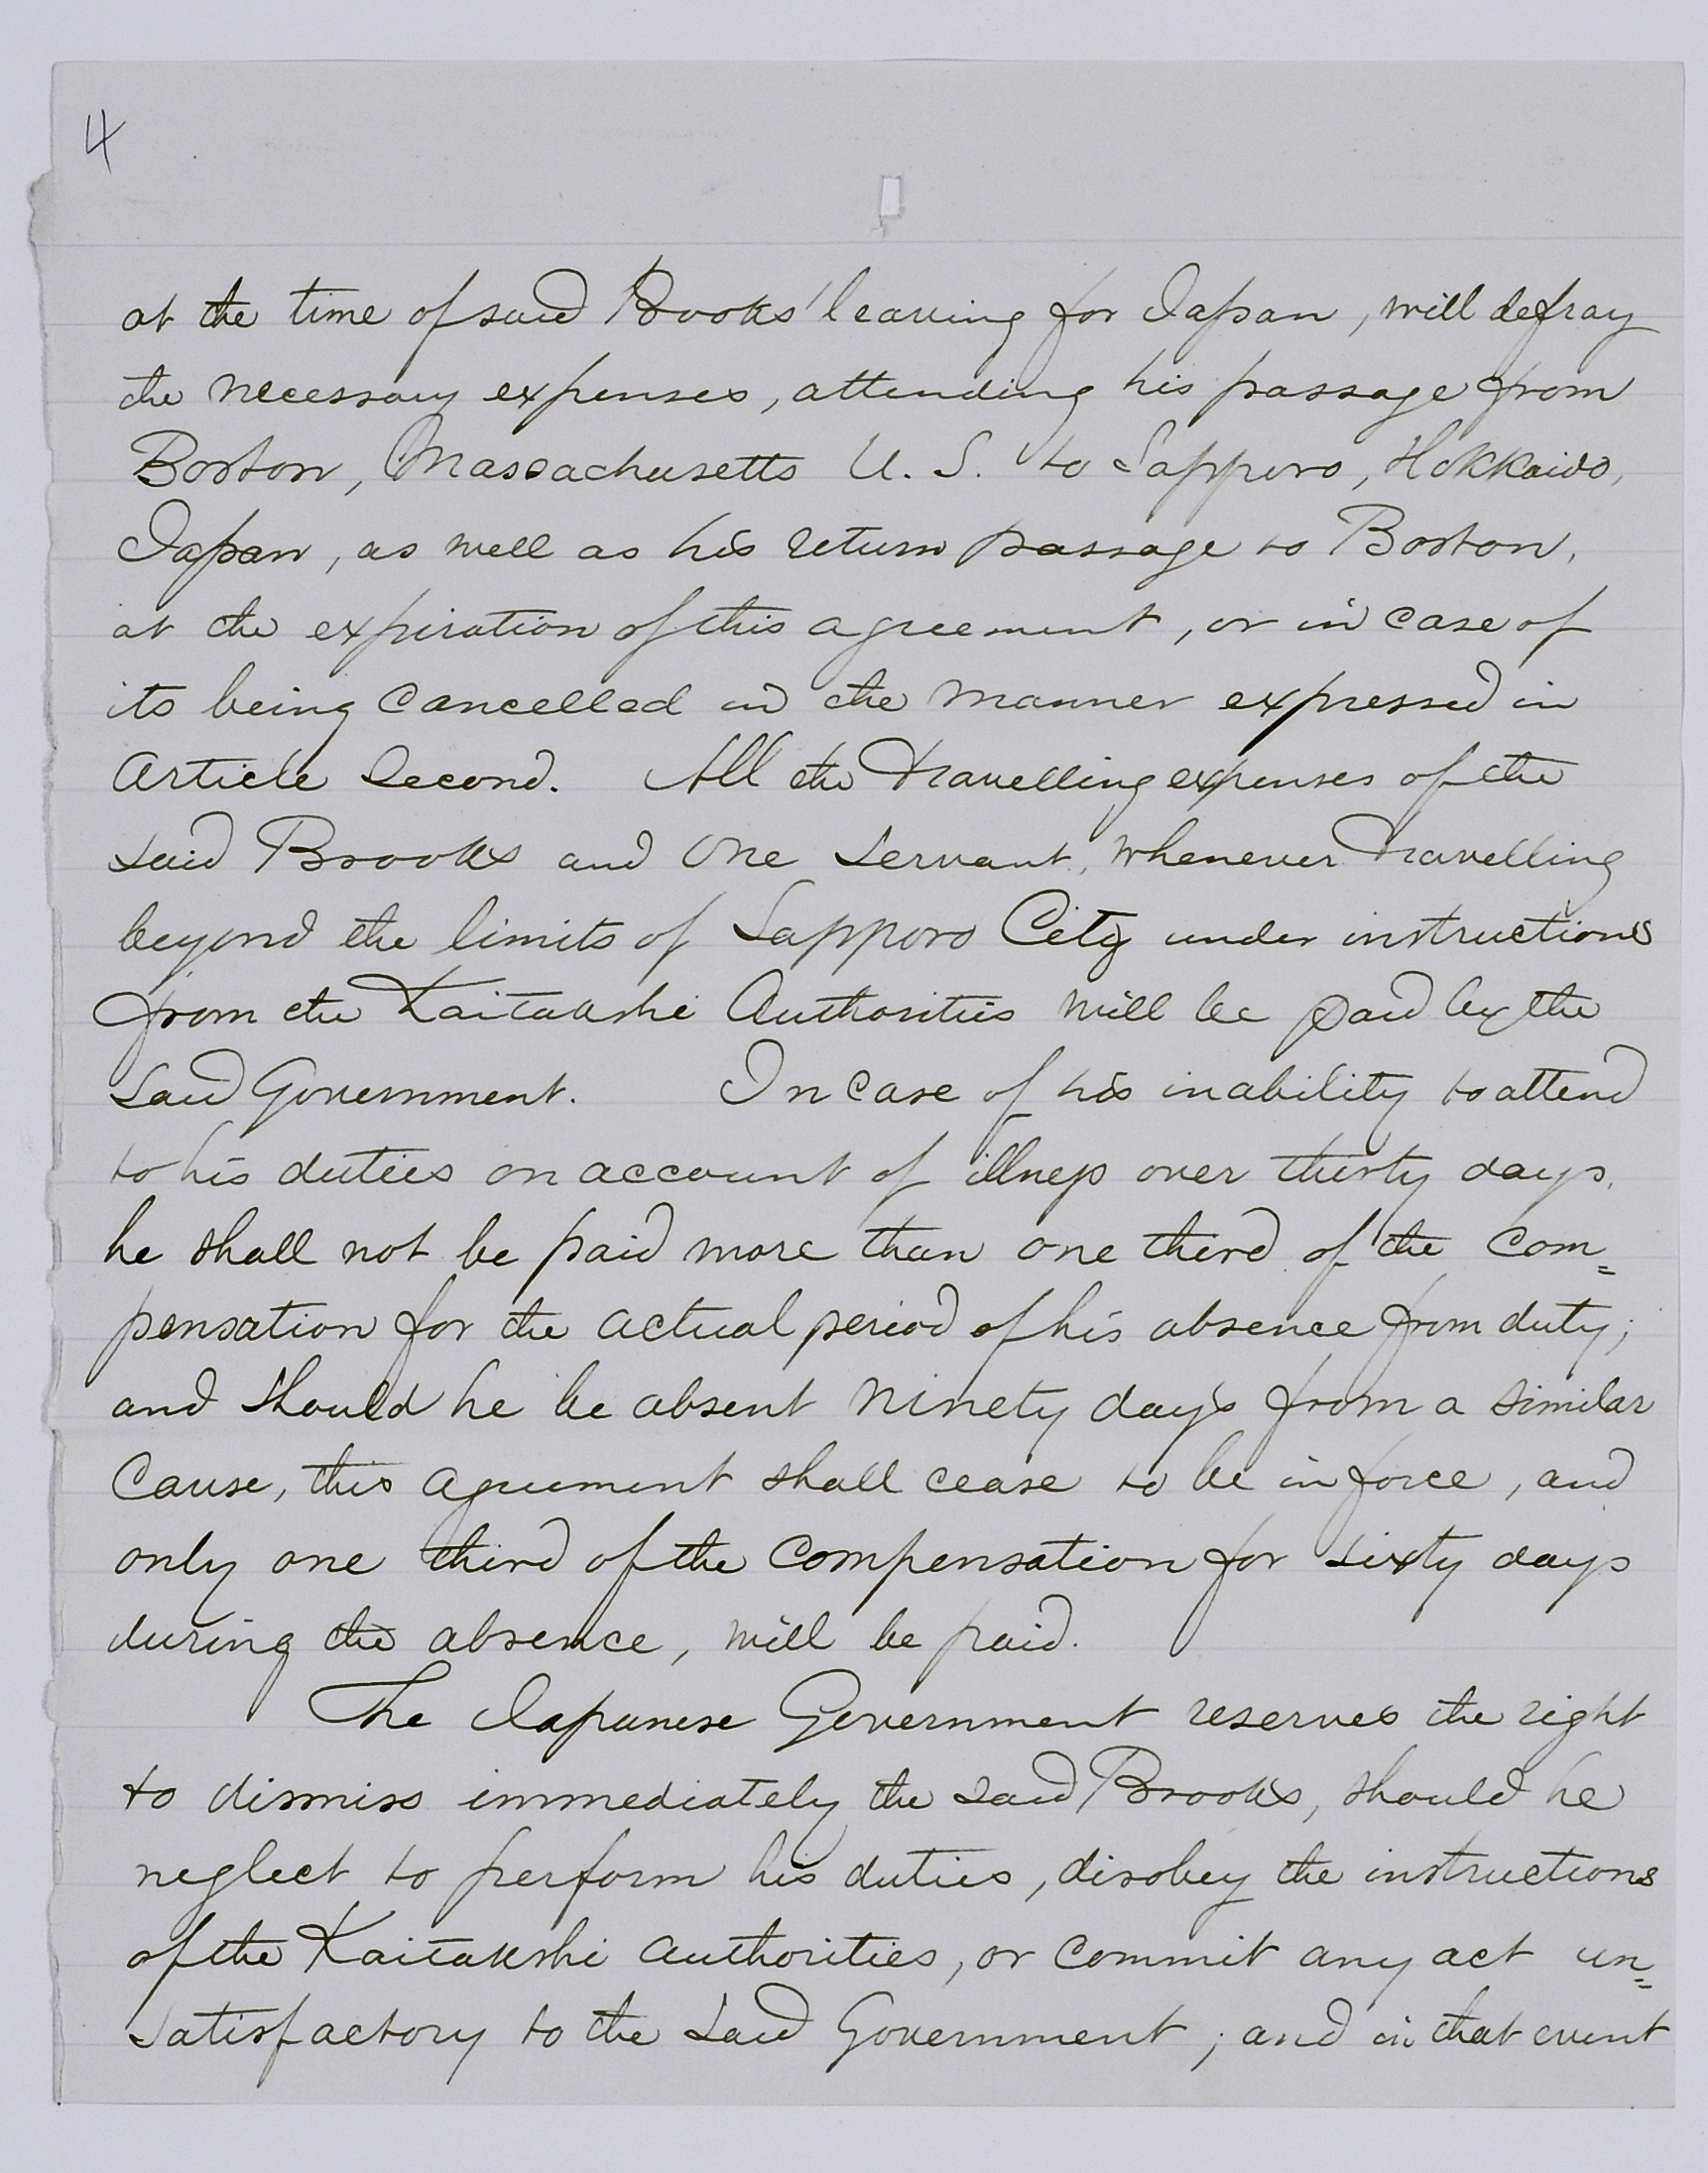 4
at the time of said Brooks' leaving for Japan, will defray
the necessary expenses, attending his passage from
Boston, Massachusetts U. S. to Sapporo, Hokkaido,
Japan, as well as his return passage to Boston,
at the expiration of this agreement, or in case of
its being cancelled in the manner expressed in
Article Second. All the travelling expenses of the
said Brooks and one servant, whenever travelling
beyond the limits of Sapporo City under instructions
from the Kaitakshi Authorities will be paid by the
said Government. In case of his inability to attend
to his duties on account of illness over thirty days,
he shall not be paid more than one third of the com=
pensation for the actual period of his absence from duty;
and should he be absent ninety days from a similar
cause, this agreement shall cease to be in force, and
only one third of the compensation for sixty days
during the absence, will be paid.
The Japanese Government reserves the right
to dismiss immediately the said Brooks, should he
neglect to perform his duties, disobey the instructions
of the Kaitakshi authorities, or commit any act un=
satisfactory to the said Government; and in that event